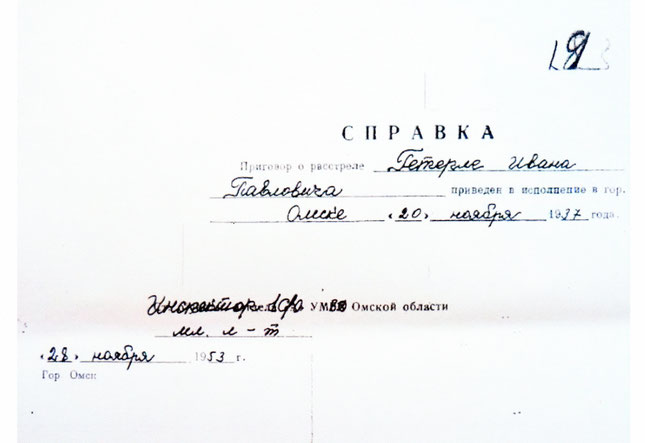 СПРАВКА
Приговор о расстреле Гетерле Ивана
Павловича приведен в исполнение в гор.
Омске «20» ноября 1937 года.
Инспектор УМВД Омской области
мл. л-т
«28» ноября 1953 г.
Гор. Омск